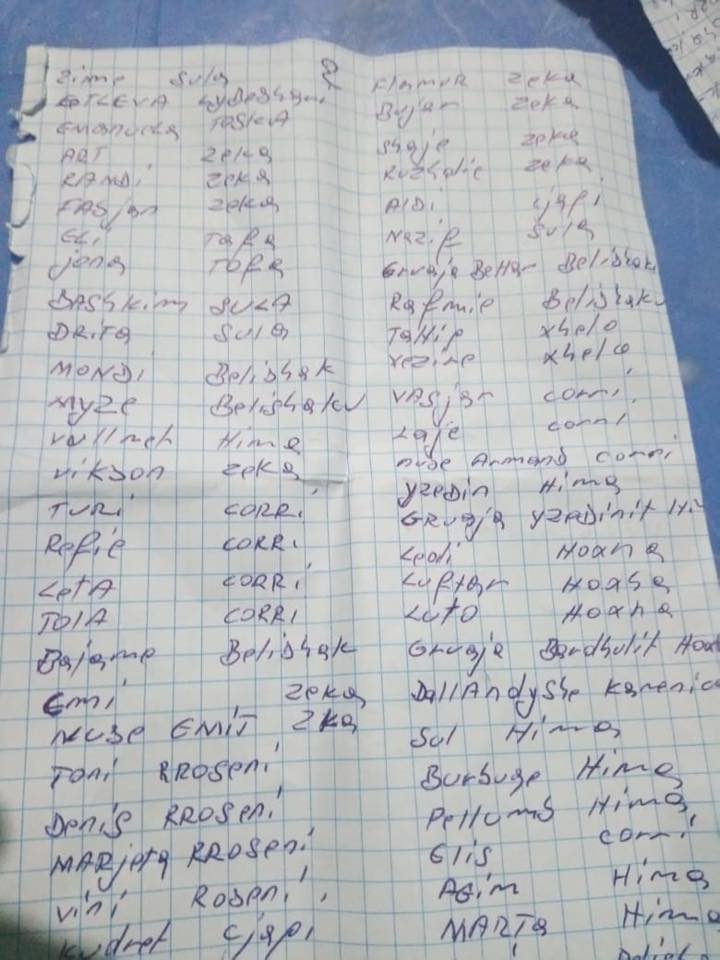 Zime Sula
Emanuela TOSKA
ART Zeka
RANDI Zeka
FASjan Zeka
ELi Tafa
jona Tofa
BASHkim SULA
DRiTA Sula
MONDi Belishak
MYZE Belishaku
Vullnet Hima
Vikson Zeka
TURi CORRi
Refie CORRi
LetA CORRi
TOlA CORRi
Bajame Belishak
Emi Zeka
NUSE EMiT ZKa
Toni RROSeni
Denis RROSeni
MARjeta RROSeni
Vini ROSeni
Kudret Cjapi
2
FlamuR Zeka
Bujar Zeka
Shaje Zeka
Ruzhdie Zeka
AlDi Cjapi
Nazif Sula
Gruaja Beltar Belishak
Rafmie Belishaku
TaHip Xhelo
Xezire Xhelo
VASjan Corri
Laje Corri
nuse Armand Corri
YZeDin Hima
Gruaja YZeDinit Hi
Ledi HOXHa
Luftar HOXHa
LutO HOXHa
Gruaja Bardhulit Hoxh
DallAndyshe Kamenica
Sul Hima
Burbuqe Hima
Pellumb Hima
Elis Corri
AGim Hima
MARTa Hima